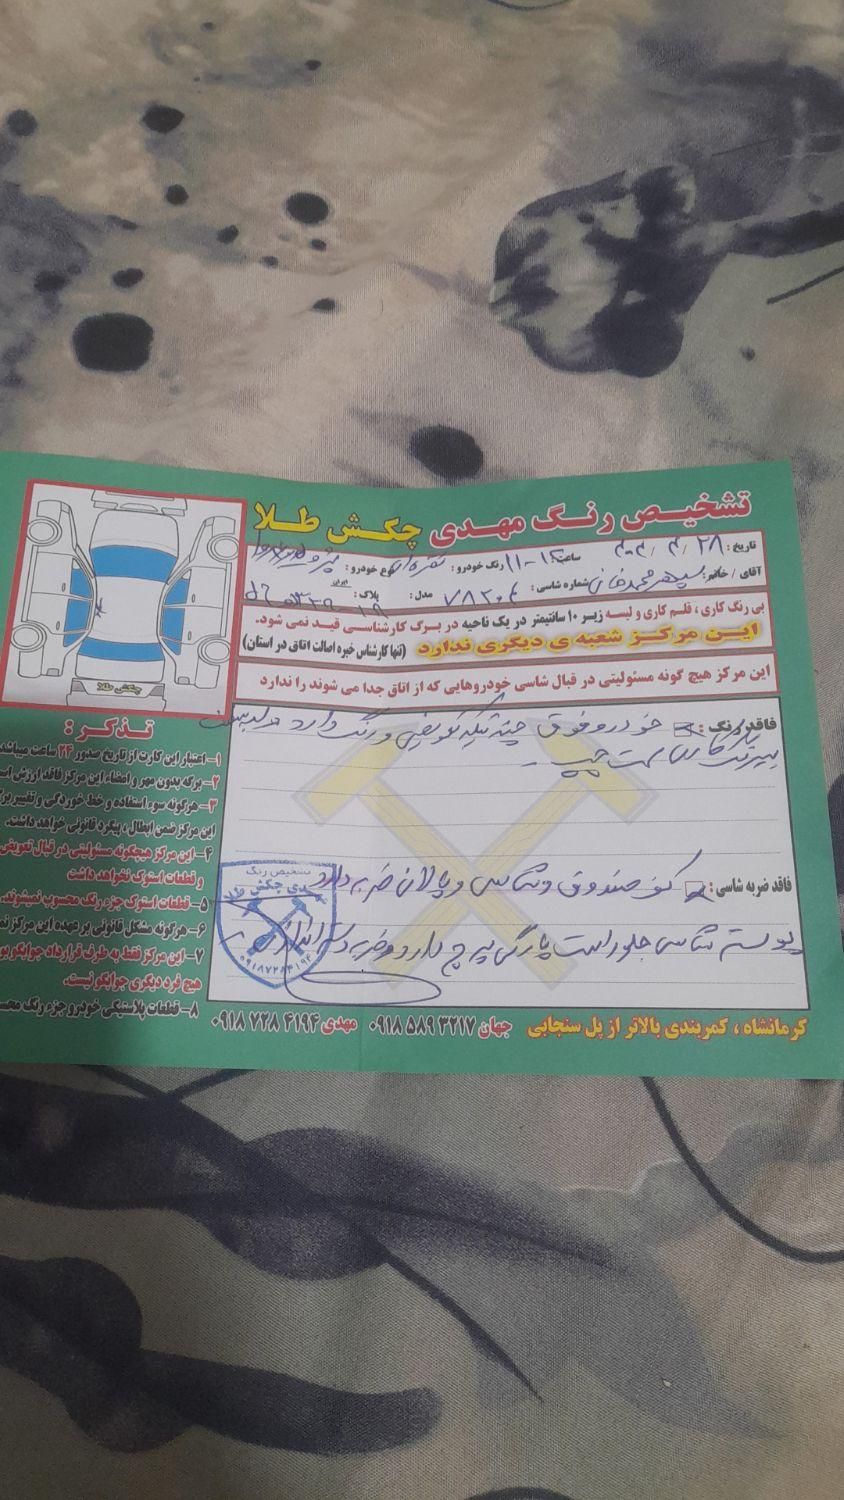 تشخیص رنگ مهدی چکش طلا
تاریخ : ۴۰۴/۴/۲۸ ساعت: ۱۲-۱۱ رنگ خودرو : نقره ای نوع خودرو : پژو
آقای / خانم: سپهر محمدخانی شماره شاسی : ۷۸۲۰۴ مدل : پلاک :
بی رنگ کاری ، قلم کاری و لیسه زیر ۱۰ سانتیمتر در یک ناحیه در برگ کارشناسی قید نمی شود.
این مرکز شعبه ی دیگری ندارد (تنها کارشناس خبره اصالت اتاق در استان)
این مرکز هیچ گونه مسئولیتی در قبال شاسی خودروهایی که از اتاق جدا می شوند را ندارد
فاقد رنگ : خودرو فوق چند تیکه تعویض و رنگ دارد
بیرنگ کاری سمت چپ
فاقد ضربه شاسی : کف صندوق و شاسی و پالان ضربه دارد
پوسته شاسی جلو راست پارگی پرچ دارد و ضربه دست انداز
تشخیص رنگ
مهدی چکش طلا
۰۹۱۸۷۲۸۴۱۹۴
چکش طلا
تذکر :
۱- اعتبار این کارت از تاریخ صدور ۲۴ ساعت میباشد
۲- برگه بدون مهر و امضاء این مرکز فاقد ارزش است
۳- هرگونه سوء استفاده و خط خوردگی و تغییر
این مرکز ضمن ابطال ، پیگرد قانونی خواهد داشت.
۴- این مرکز هیچگونه مسئولیتی در قبال تعویض
و قطعات استوک نخواهد داشت
۵- قطعات استوک جزء رنگ محسوب نمیشوند.
۶- هرگونه مشکل قانونی بر عهده این مرکز
۷- این مرکز فقط به طرف قرارداد جوابگو
هیچ فرد دیگری جوابگو نیست.
۸- قطعات پلاستیکی خودرو جزء رنگ
کرمانشاه ، کمربندی بالاتر از پل سنجابی جهان ۰۹۱۸ ۵۸۹ ۳۲۱۷ مهدی ۰۹۱۸ ۷۲۸ ۴۱۹۴